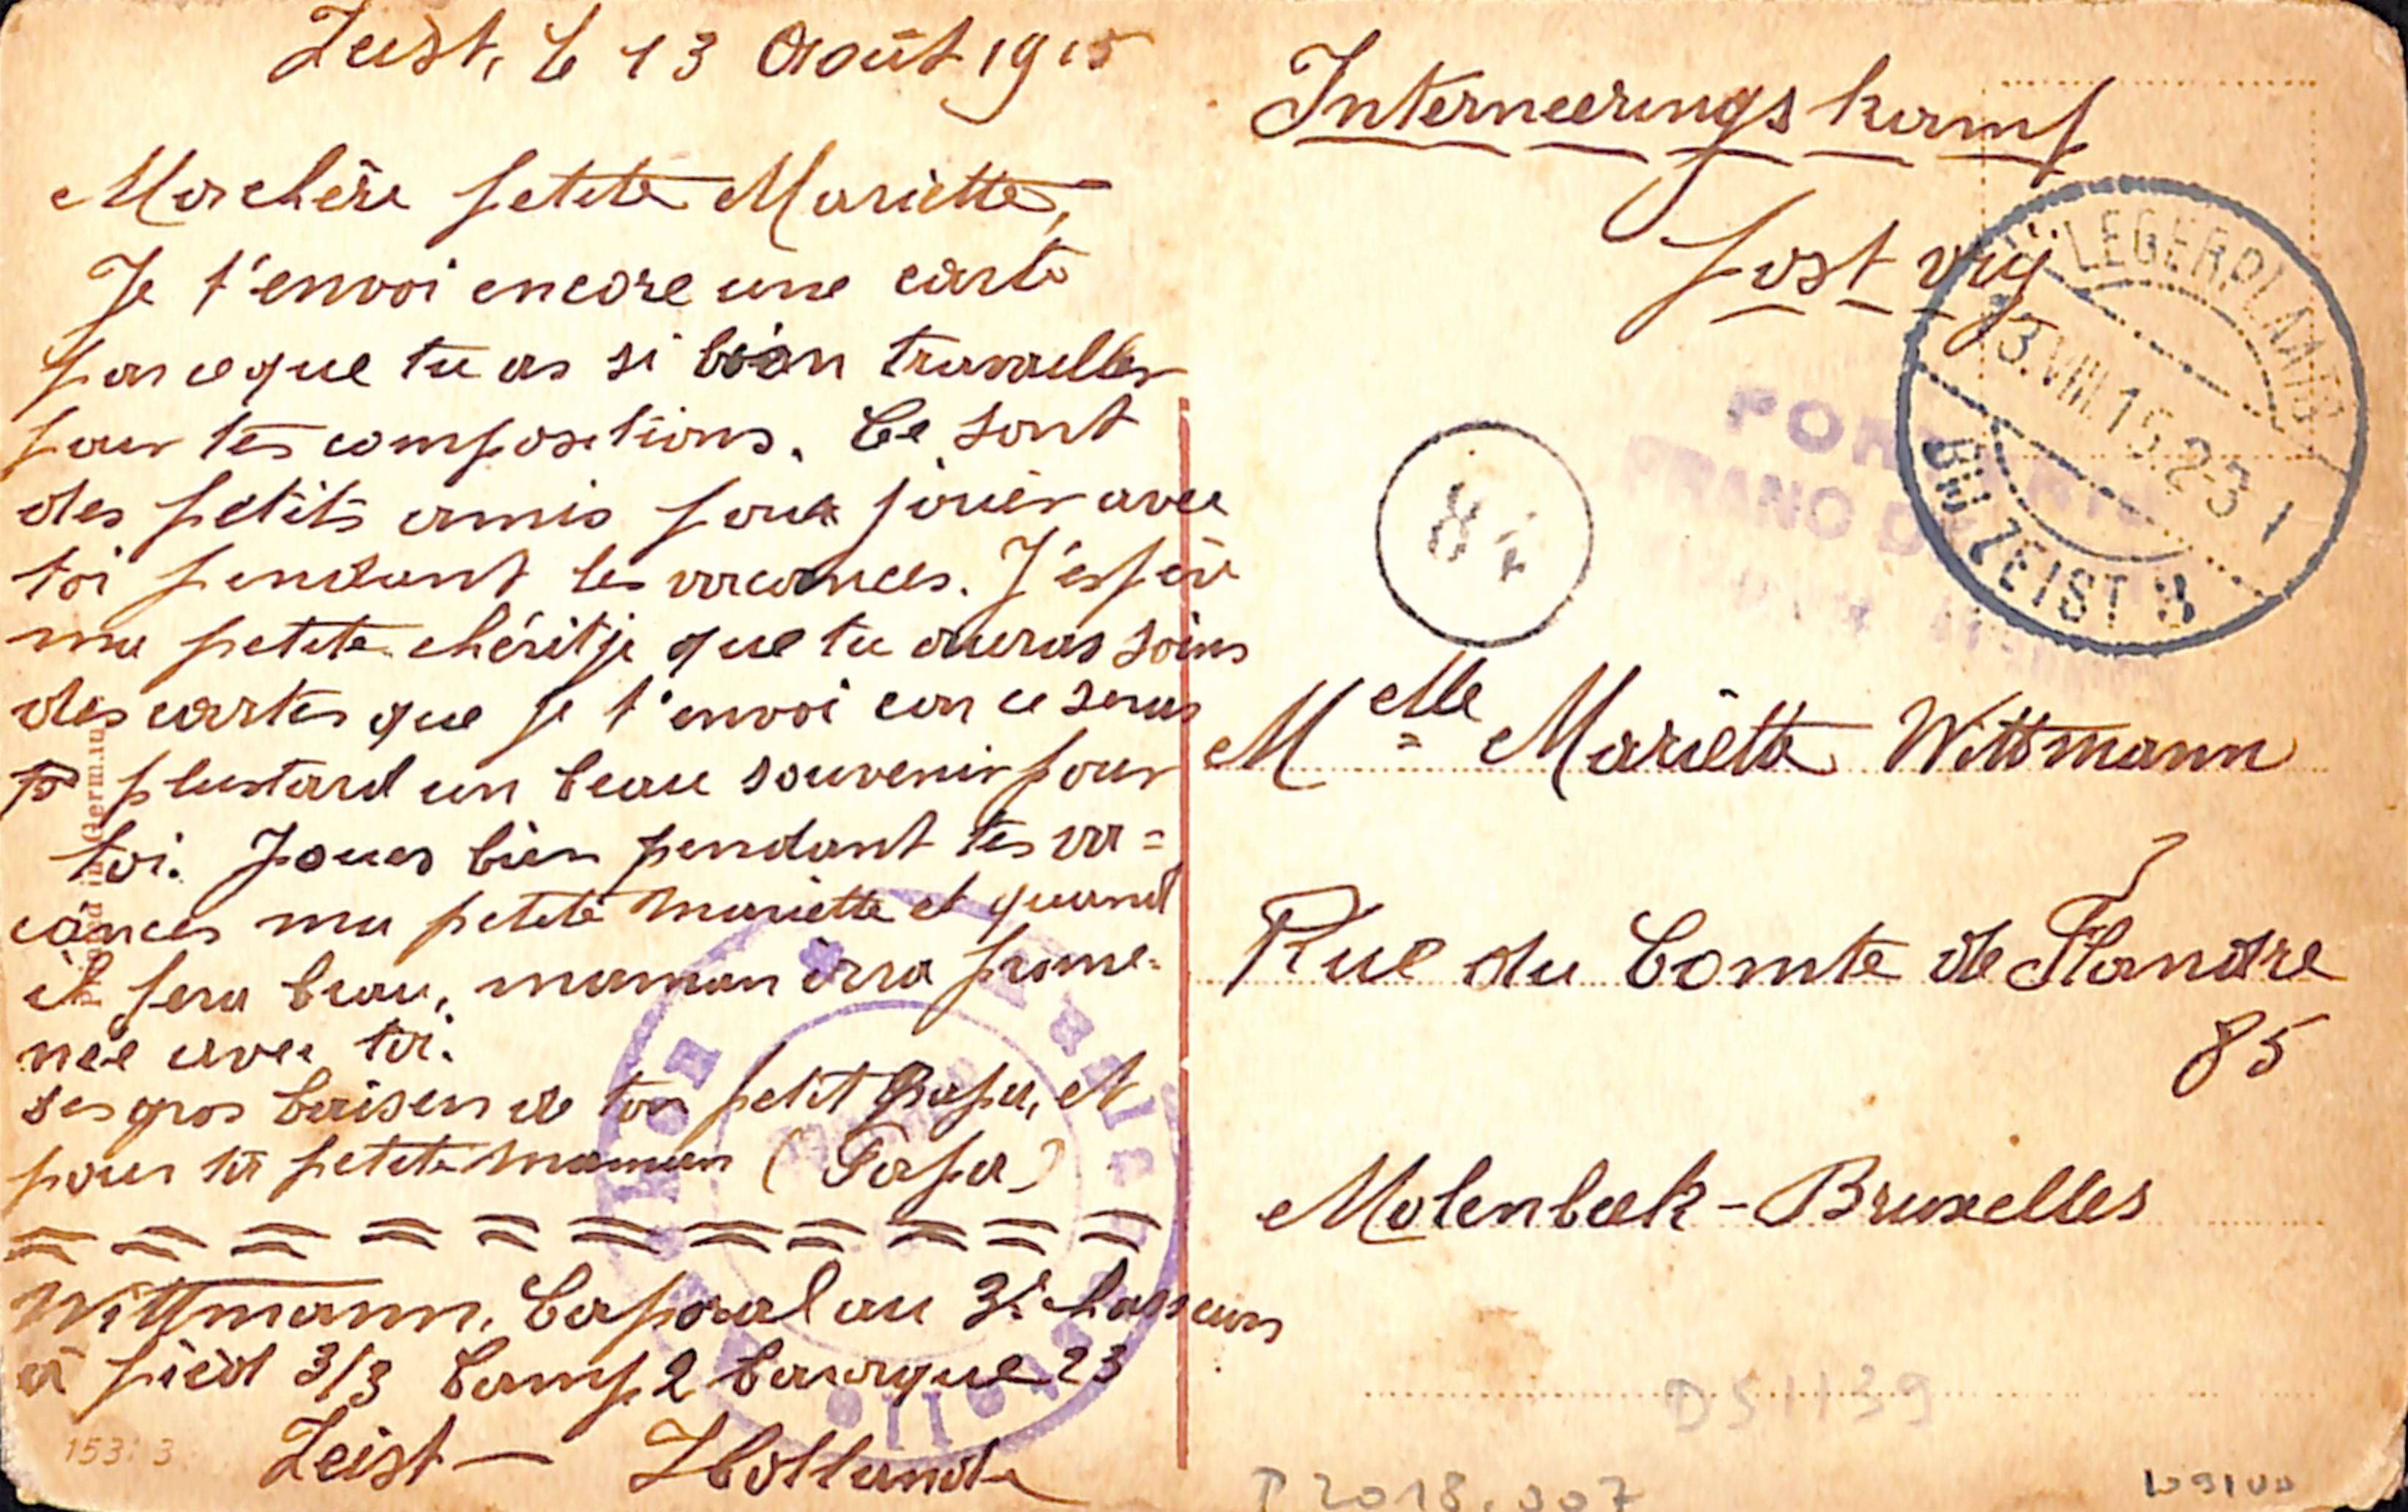 Zeist, le 13 Août 1915
Ma chère petite Mariette,
Je t'envoi encore une carte
parceque tu as si bien travailler
pour tes compositions. Ce sont
des petits amis pour jouer avec
toi pendant les vacances. J'espère
ma petite chéritje que tu auras soins
des cartes que je t'envoi car ce seras
plustard un beau souvenir pour
toi. Joues bien pendant tes va=
cances ma petite Mariette et quand
il fera beau, maman irra prome-
née avec toi.
des gros baisers de ton petit Papa, et
pour ta petite maman (Papa)
Wittmann, Caporal au 3e chasseurs
à pièd 3/3 Camp 2 baraque 23
Zeist — Hollande
15313
Interneerings kamp
post vrij
LEGERPLAATS
13.VIII.15.2-3
BIJ ZEIST
PORT
FRANC DE
84
Melle Mariette Wittmann
Rue du Comte de Flandre
85
Molenbeek - Bruxelles
DS1139
P2018.007